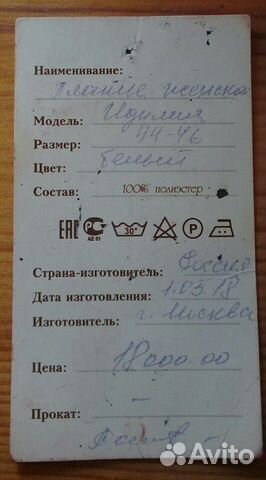 Наименование:
Платье женское
Модель: Идилия
Размер: 44-46
Цвет: белый
Состав: 100% полиэстер
EAC РС АЕ 81 30° P
Страна-изготовитель: Россия
Дата изготовления: 1.03.18
Изготовитель: г. Москва
Цена: 18000.00
Прокат: –
Avito